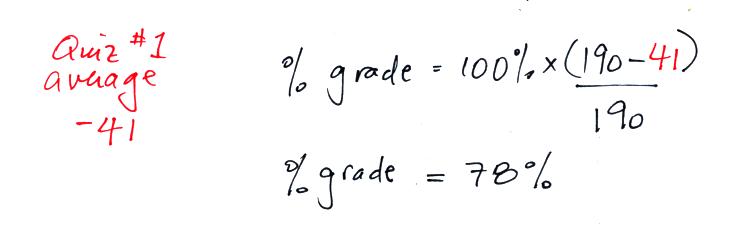 Quiz #1
average
-41
% grade = 100% × (190-41)
190
% grade = 78%